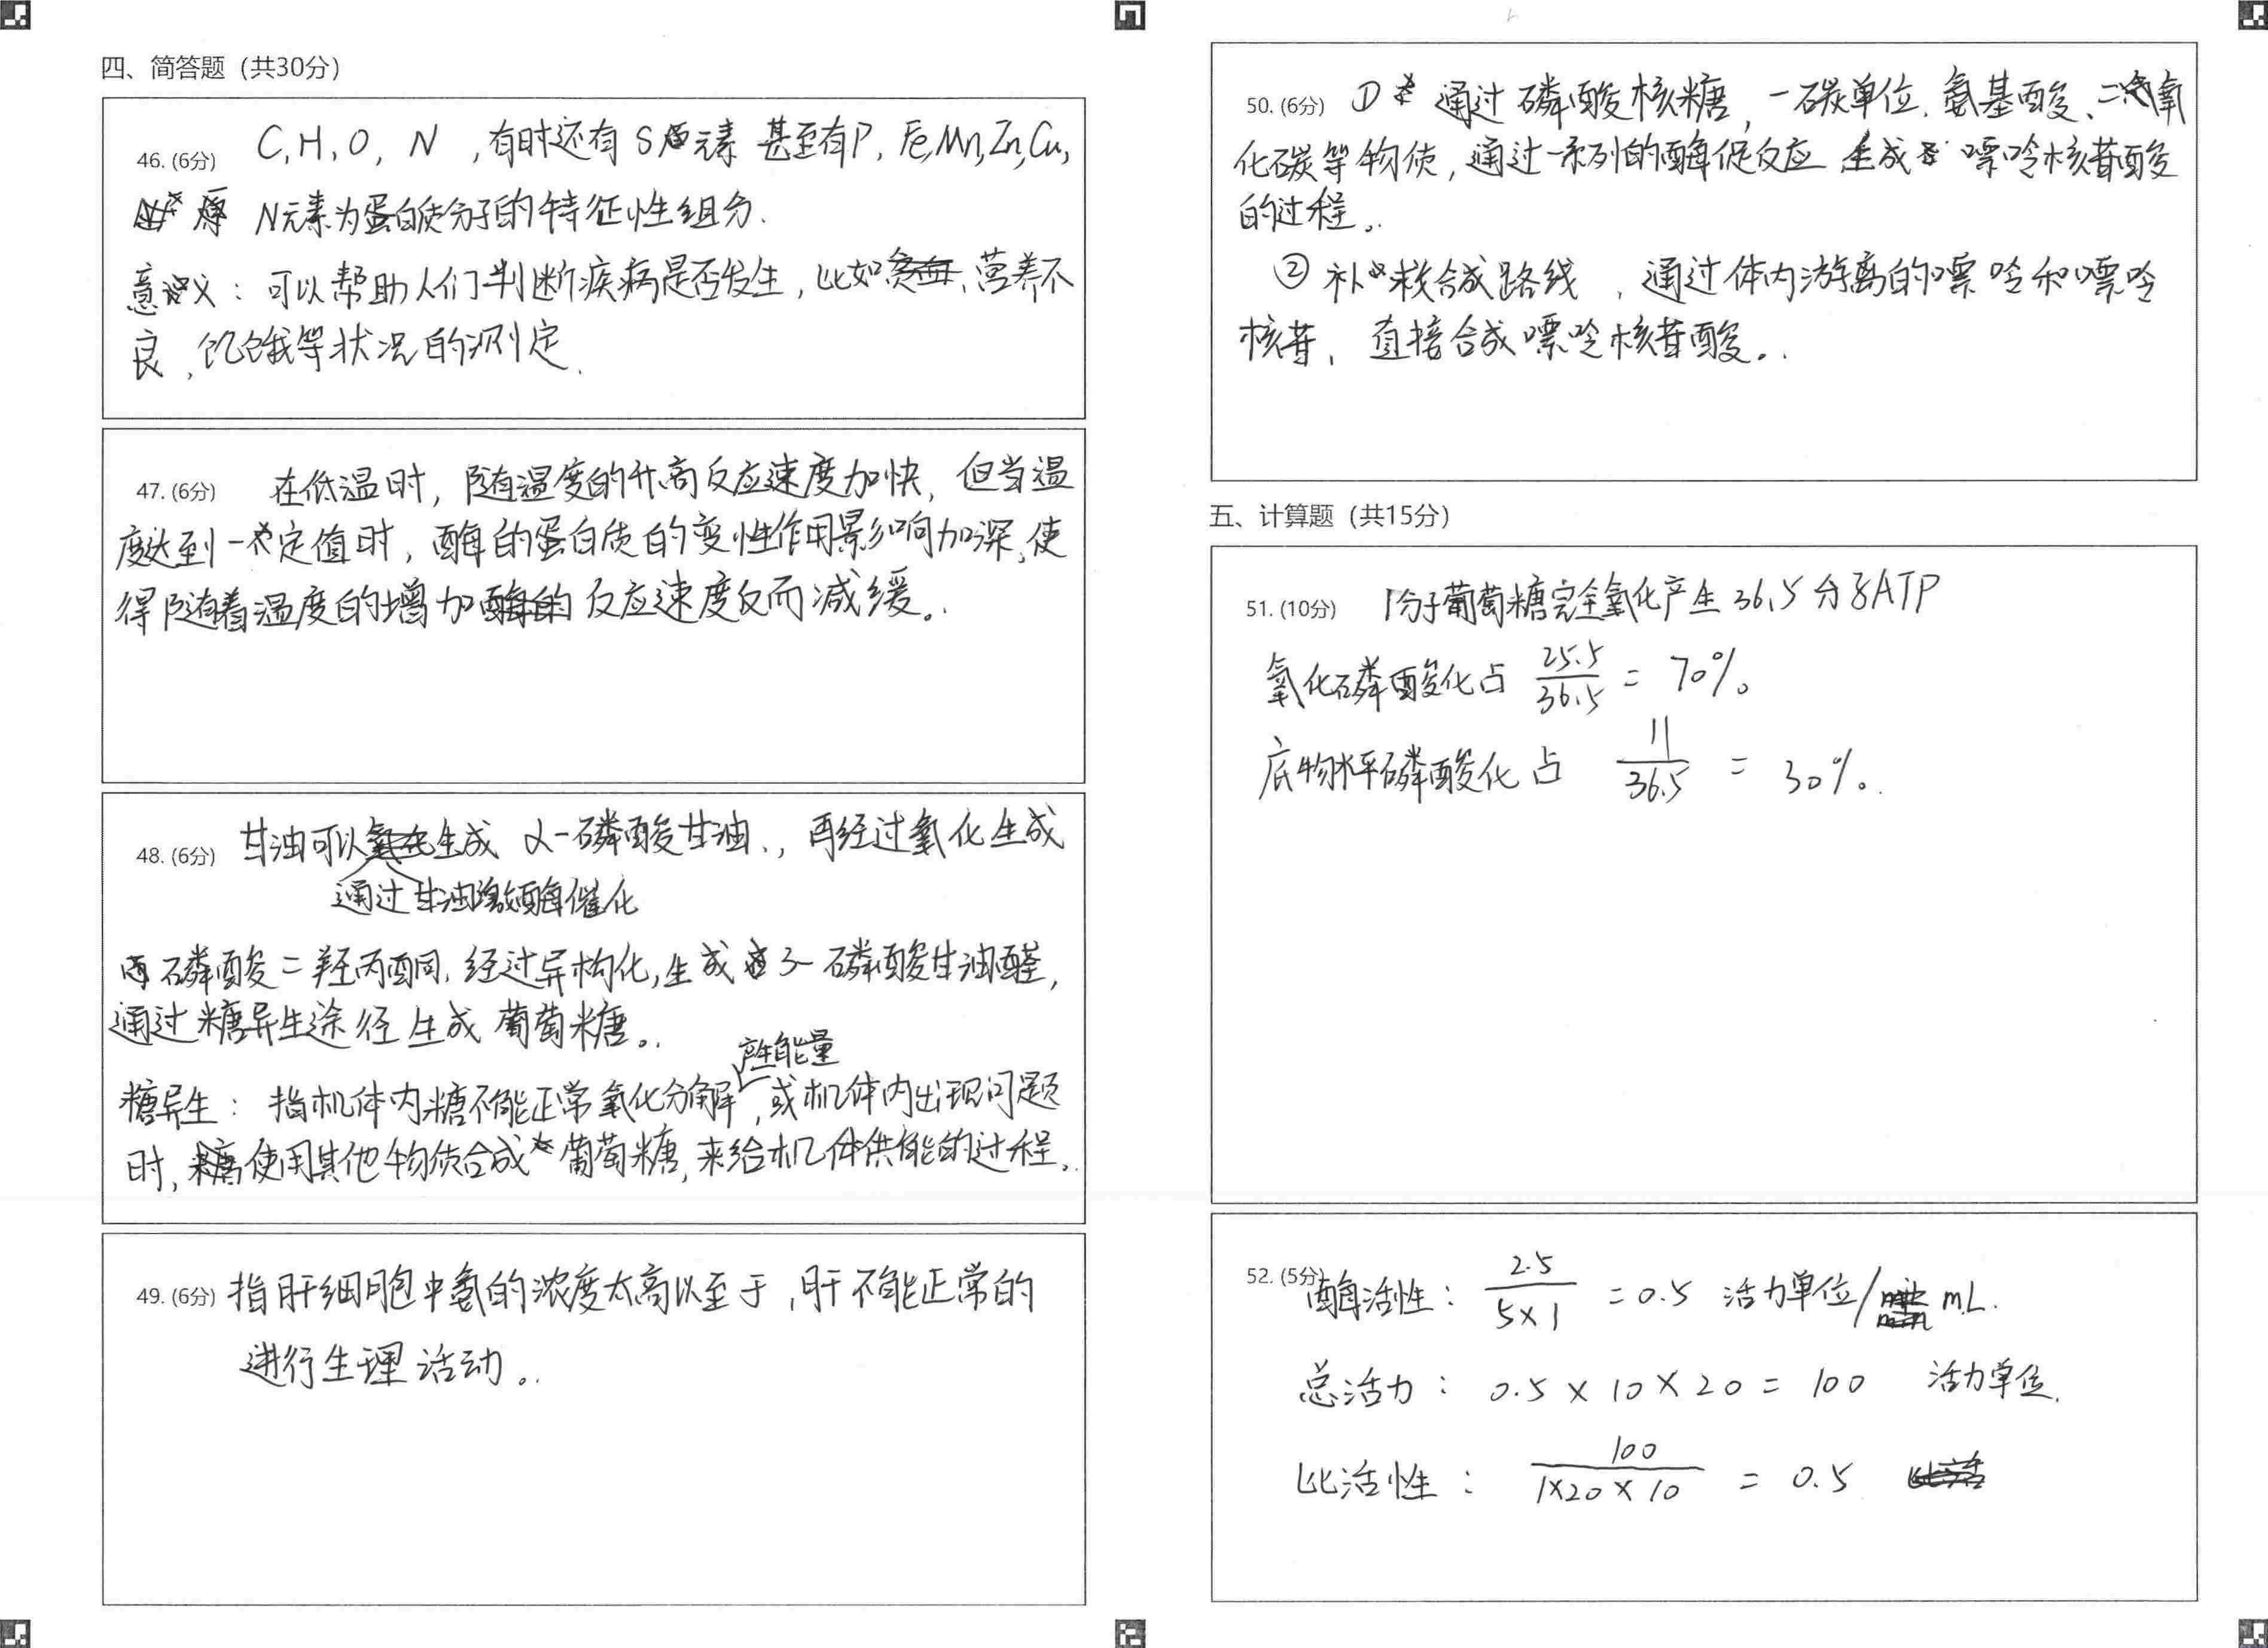 四、简答题（共30分）
46. (6分) C, H, O, N ，有时还有 S 元素 甚至有P, Fe, Mn, Zn, Cu,
N元素为蛋白质分子的特征性组分.
意义：可以帮助人们判断疾病是否发生，比如贫血、营养不
良，饥饿等状况的测定.
47. (6分) 在低温时，随温度的升高反应速度加快，但当温
度达到一定值时，酶的蛋白质的变性作用影响加深，使
得随着温度的增加反应速度反而减缓。
48. (6分) 甘油可以生成 α-磷酸甘油，再经过氧化生成
通过甘油激酶催化
磷酸二羟丙酮，经过异构化，生成 3-磷酸甘油醛，
通过糖异生途径生成葡萄糖。
产生能量
糖异生：指机体内糖不能正常氧化分解，或机体内出现问题
时，使用其他物质合成葡萄糖，来给机体供能的过程。
49. (6分) 指肝细胞中氨的浓度太高以至于，肝不能正常的
进行生理活动。
50. (6分) ① 通过磷酸核糖，一碳单位，氨基酸、二氧
化碳等物质，通过一系列的酶促反应 生成 嘌呤核苷酸
的过程。
② 补救合成路线，通过体内游离的嘌呤和嘌呤
核苷，直接合成嘌呤核苷酸。
五、计算题（共15分）
51. (10分) 1分子葡萄糖完全氧化产生 36.5 分子ATP
氧化磷酸化占 25.5/36.5 = 70%。
底物水平磷酸化占 11/36.5 = 30%。
52. (5分) 酶活性： 2.5/5×1 = 0.5 活力单位/mL.
总活力： 0.5 × 10 × 20 = 100 活力单位.
比活性： 100/1×20×10 = 0.5